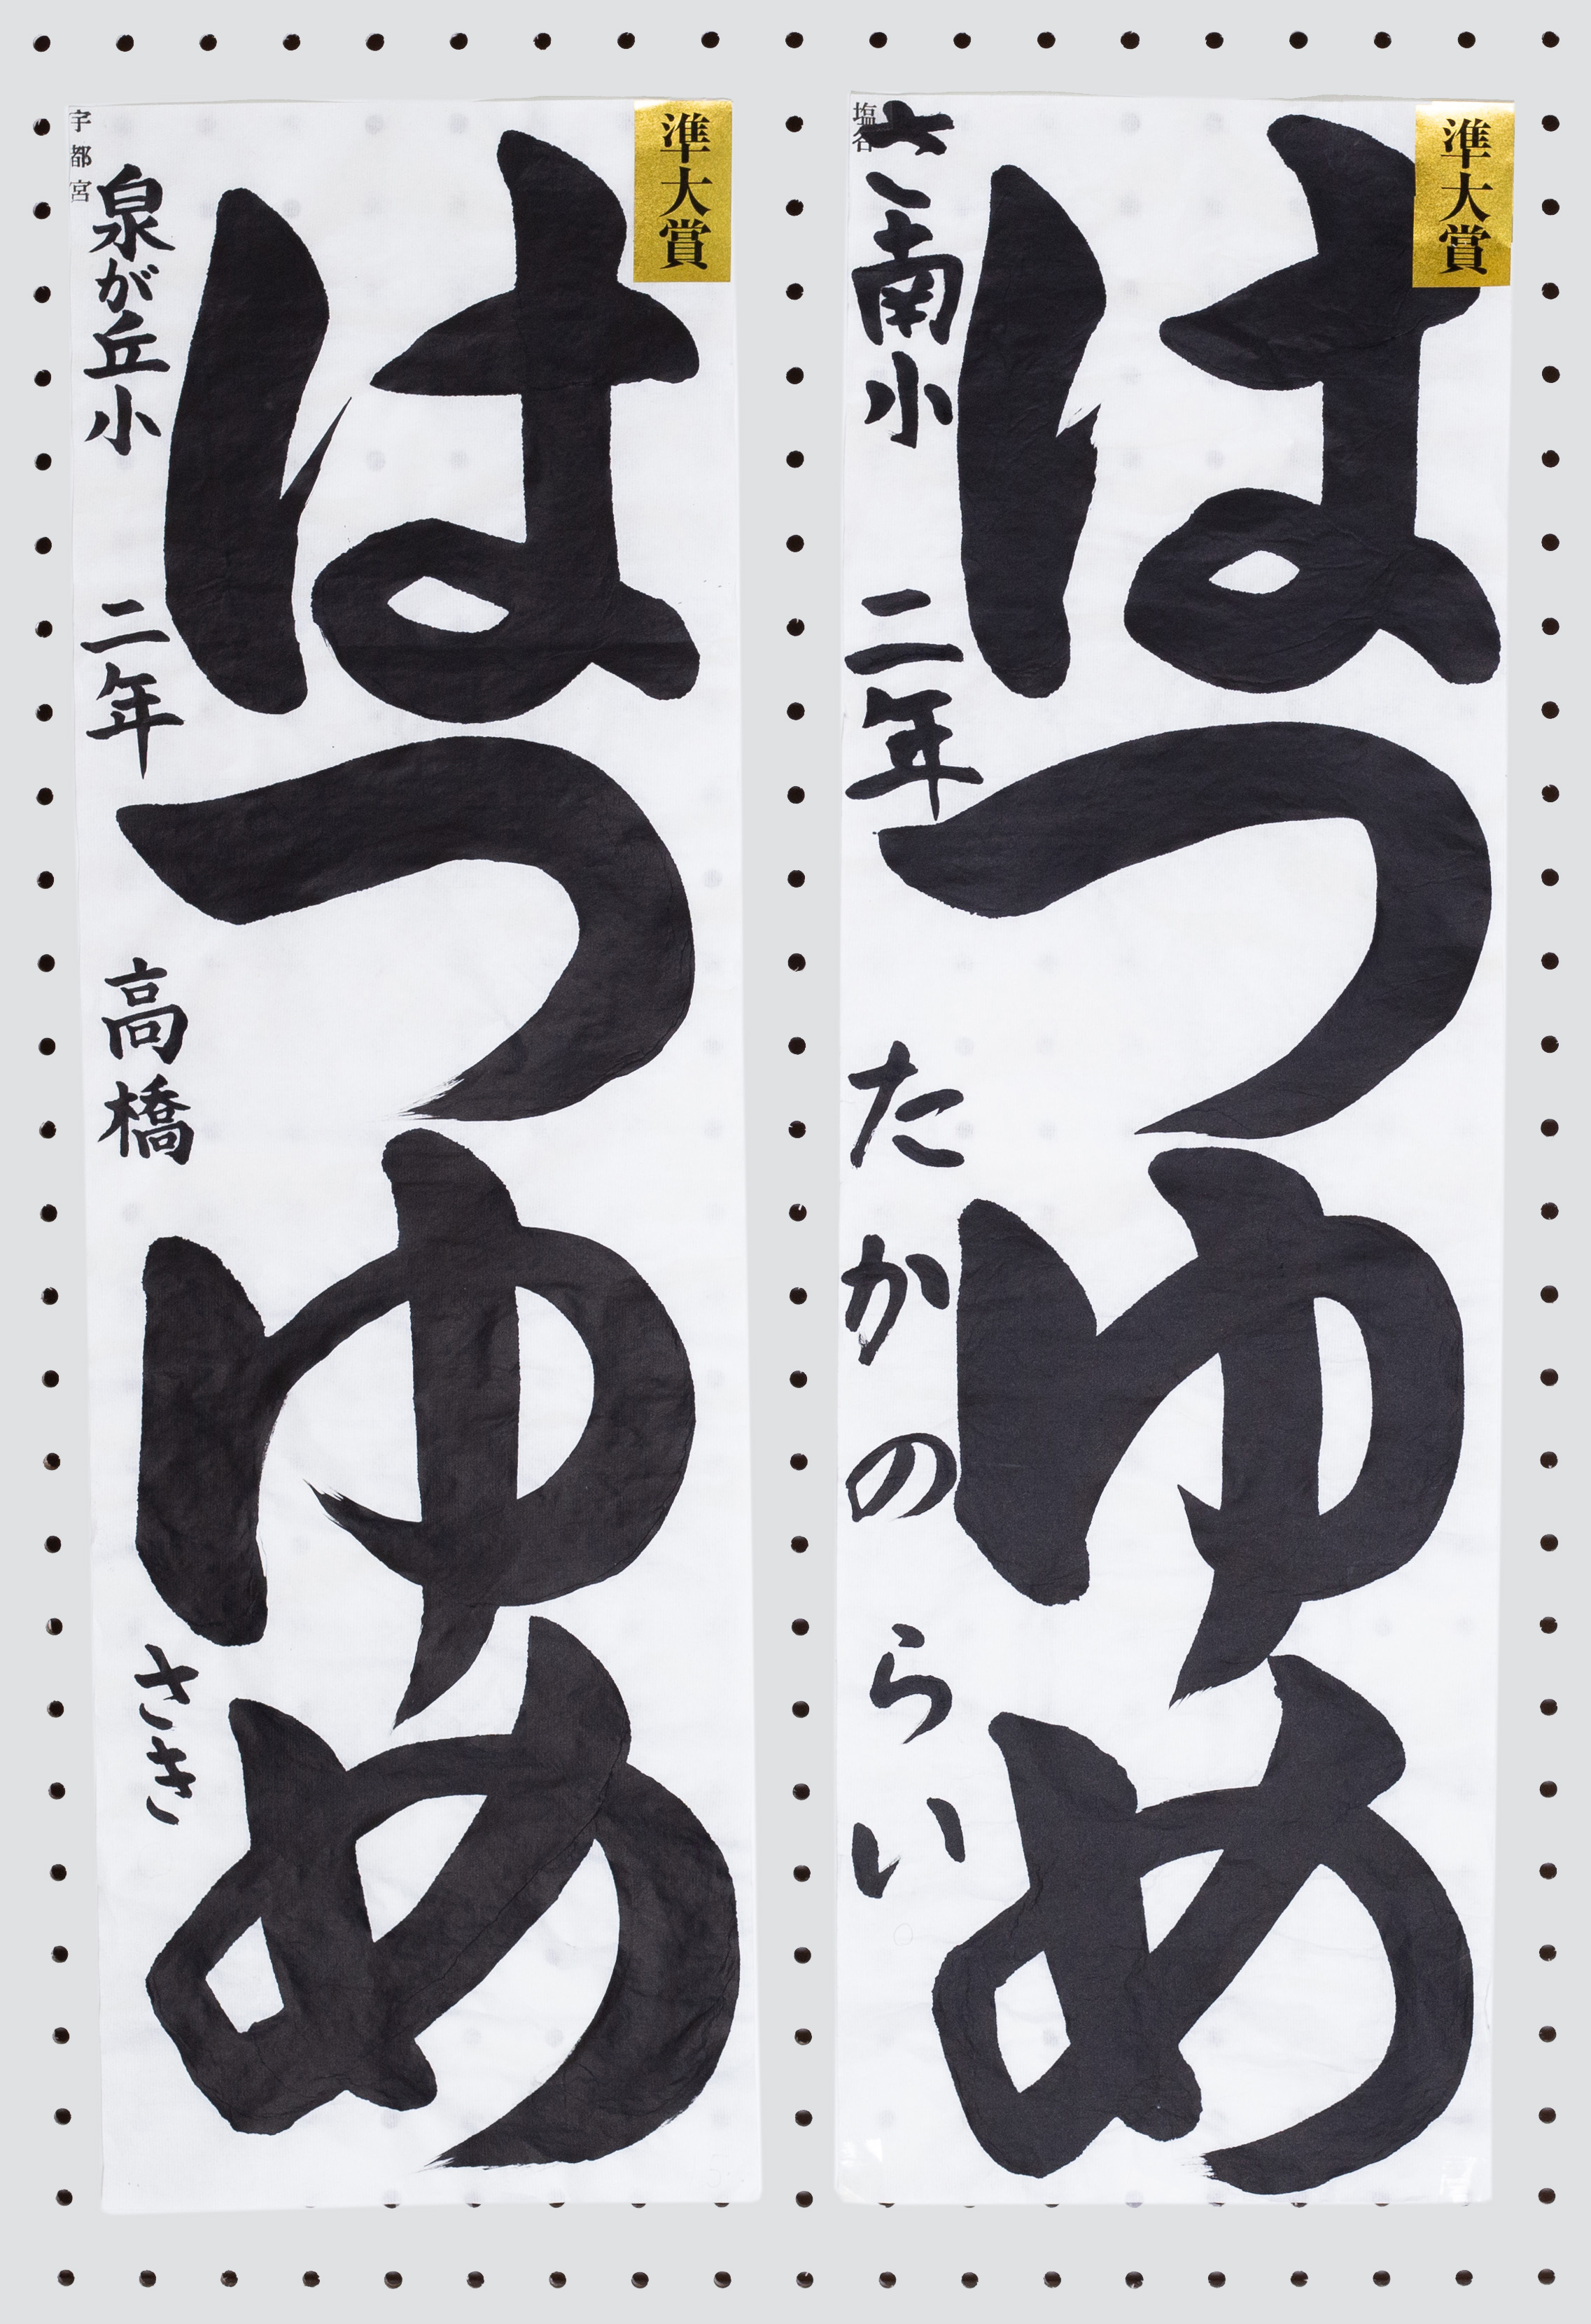 準大賞
はつゆめ
塩谷
南小 二年 たかの らい
準大賞
はつゆめ
宇都宮
泉が丘小 二年 高橋 さき